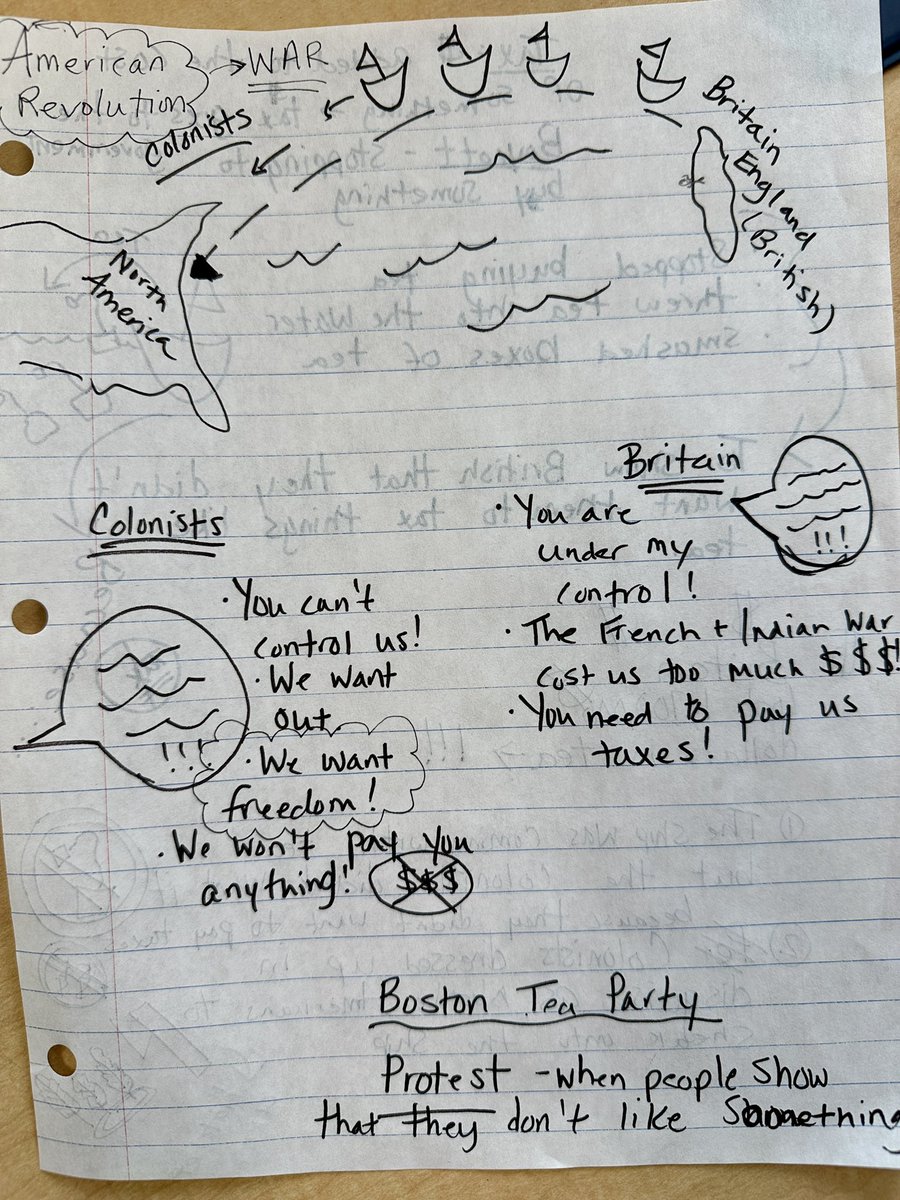 American → WAR
Revolution
Colonists
Britain
England
(British)
North
America
Colonists
• You can't
control us!
• We want
out
• We want
freedom!
• We won't pay you
anything! $$$
!!!
Britain
• You are
under my
control!
• The French + Indian War
cost us too much $$$!
• You need to pay us
taxes!
!!!
Boston Tea Party
Protest - when people show
that they don't like Something